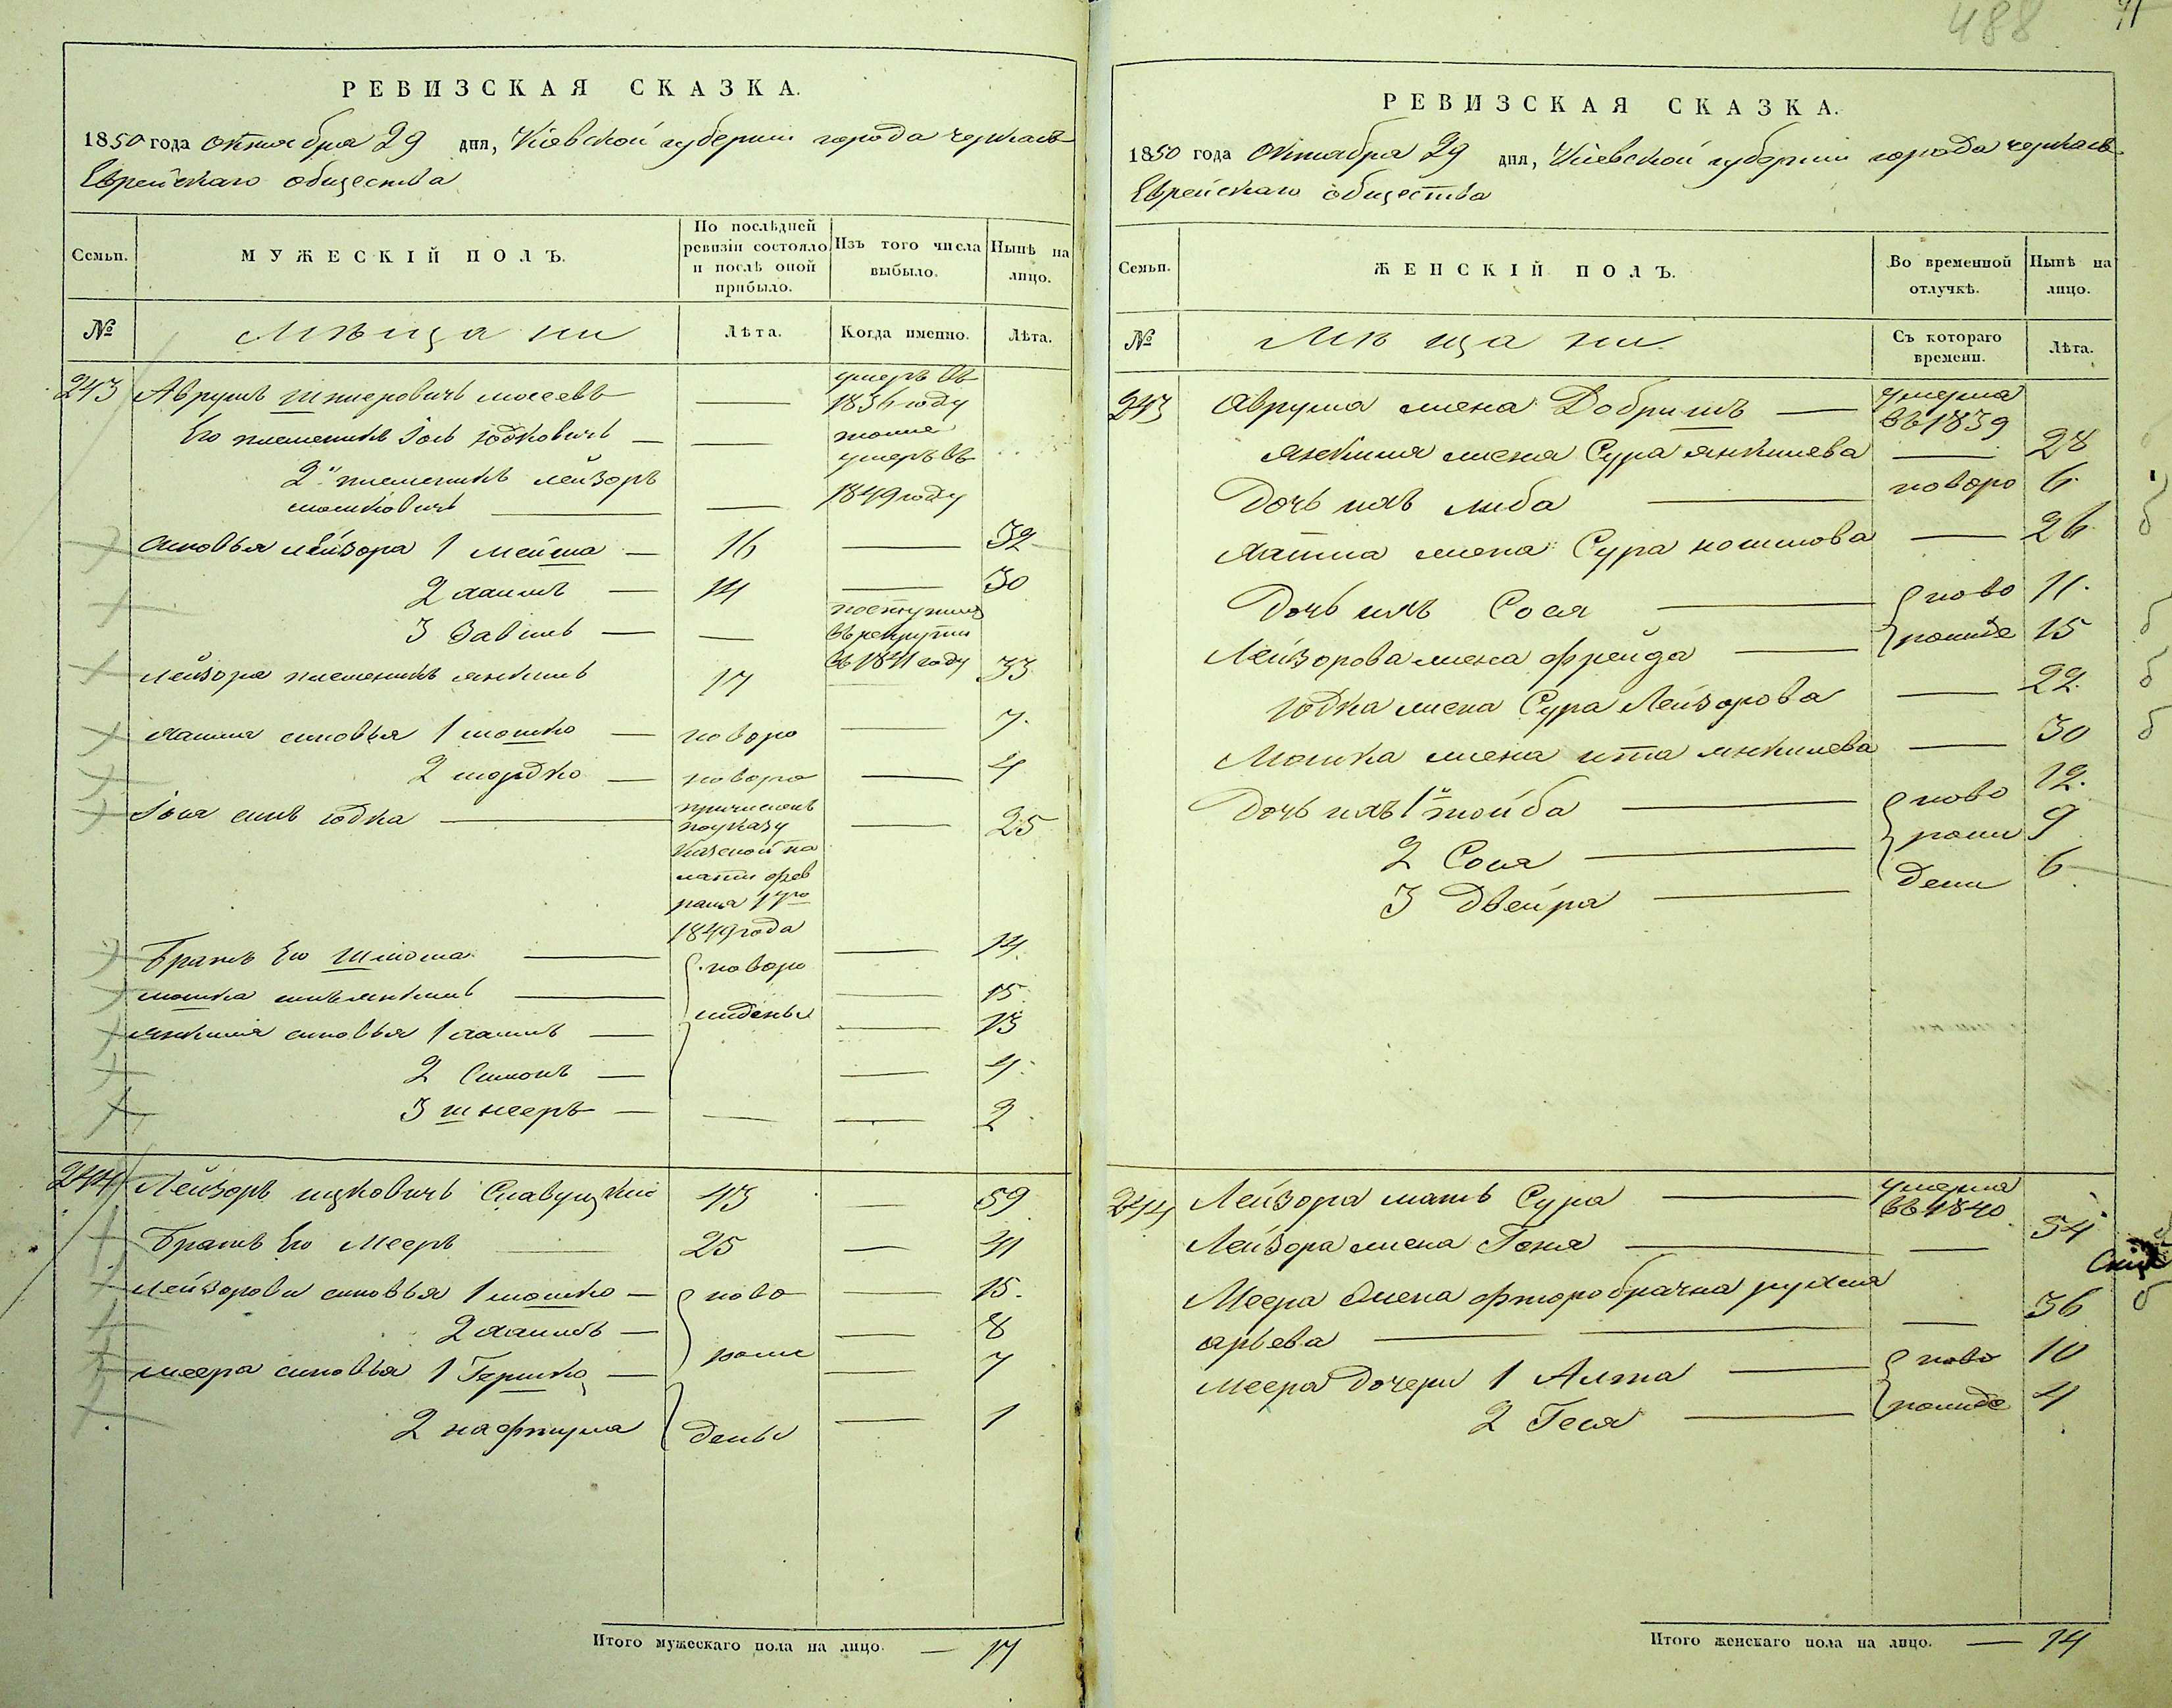 488
РЕВИЗСКАЯ СКАЗКА.
1850 года октября 29 дня, Кіевской губерніи города Черкасъ
Еврейскаго общества
Семьи.
МУЖЕСКІЙ ПОЛЪ.
По послѣдней ревизіи состояло и послѣ оной прибыло.
Изъ того числа выбыло.
Нынѣ на лицо.
№
Мѣщани
Лѣта.
Когда именно.
Лѣта.
243 Аврумъ Шмееровичъ Мосеевъ — умеръ въ 1836 году
Его племенникъ Іось Юдковичъ — — тоже
2й племенникъ Лейзоръ Мошковичъ — — умеръ въ 1849 году
Сыновья Лейзора 1 Мейша — 16 — 32
2 Хаимъ — 14 — 30
3 Завиль — — поступилъ въ рекруты въ 1841 году
Лейзора племенникъ Янкель 17 — 33
Хаима сыновья 1 Мошко — новоро — 7.
2 Мордко — новоро — 4
Іося сынъ Юдка — причисленъ по указу Казенной палаты февраля 1849 года — 25
Братъ его Шлиома — новоро — 14.
Мошка сынъ Янкель — — 15.
Янкеля сыновья 1 Хаимъ — — 13
2 Симонъ — — 4.
3 Шнееръ — — — 2
244 Лейзоръ Ицковичъ Славуцкій 43 — 59
Братъ его Мееръ 25 — 41
Лейзорови сыновья 1 Мошко — ново — 15.
2 Хаимъ — — 8
Меера сыновья 1 Гершко — рож — 7
2 Нафтула денъ — 1
Итого мужескаго пола на лицо. — 17
РЕВИЗСКАЯ СКАЗКА.
1850 года Октября 29 дня, Кіевской губерніи города Черкасъ
Еврейскаго общества
Семьи.
ЖЕНСКІЙ ПОЛЪ.
Во временной отлучкѣ.
Нынѣ на лицо.
№
Мѣщани
Съ котораго времени.
Лѣта.
243 Аврума жена Добришъ — умерла въ 1839
Янкеля жена Сура Янкилева — 28
Дочь ихъ Либа — новоро 6.
Хаима жена Сура — 26
Дочь ихъ Сося — ново 11.
Лейзорова жена Фрейда — рожде 15
Юдка жена Сура Лейзорова — 22.
Мошка жена Ита Янкилева — 30
Дочь ихъ 1я Тойба — ново 12.
2 Сося — рож 9
3 Двейра — дени 6
244 Лейзора мать Сура — умерла въ 1840
Лейзора жена Геня — — 54
Меера жена фторобрачна Рухля
Арьева — — — 36
Меера дочери 1 Алта — ново 10
2 Геся — рожде 4
Итого женскаго пола на лицо. — 14